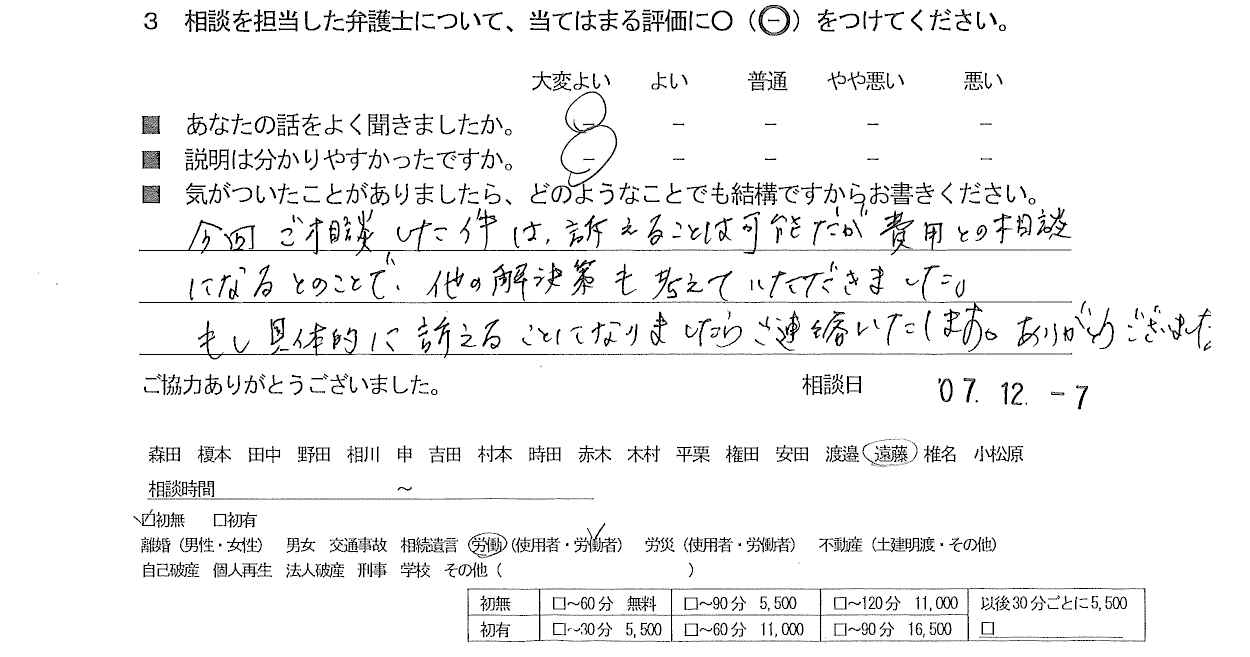 3 相談を担当した弁護士について、当てはまる評価に〇（㊀）をつけてください。
大変よい よい 普通 やや悪い 悪い
■ あなたの話をよく聞きましたか。 － － － － －
■ 説明は分かりやすかったですか。 － － － － －
■ 気がついたことがありましたら、どのようなことでも結構ですからお書きください。
今回ご相談した件は、訴えることは可能だが費用との相談
になるとのことで、他の解決策も考えていただきました。
もし具体的に訴えることになりましたらご連絡いたします。ありがとうございました
ご協力ありがとうございました。 相談日 '07.12.-7
森田 榎本 田中 野田 相川 申 吉田 村本 時田 赤木 木村 平栗 権田 安田 渡邉 遠藤 椎名 小松原
相談時間 ～
☑初無 □初有
離婚（男性・女性） 男女 交通事故 相続遺言 労働（使用者・労働者） 労災（使用者・労働者） 不動産（土建明渡・その他）
自己破産 個人再生 法人破産 刑事 学校 その他（ ）
初無 □～60分 無料 □～90分 5,500 □～120分 11,000 以後30分ごとに5,500
初有 □～30分 5,500 □～60分 11,000 □～90分 16,500 □